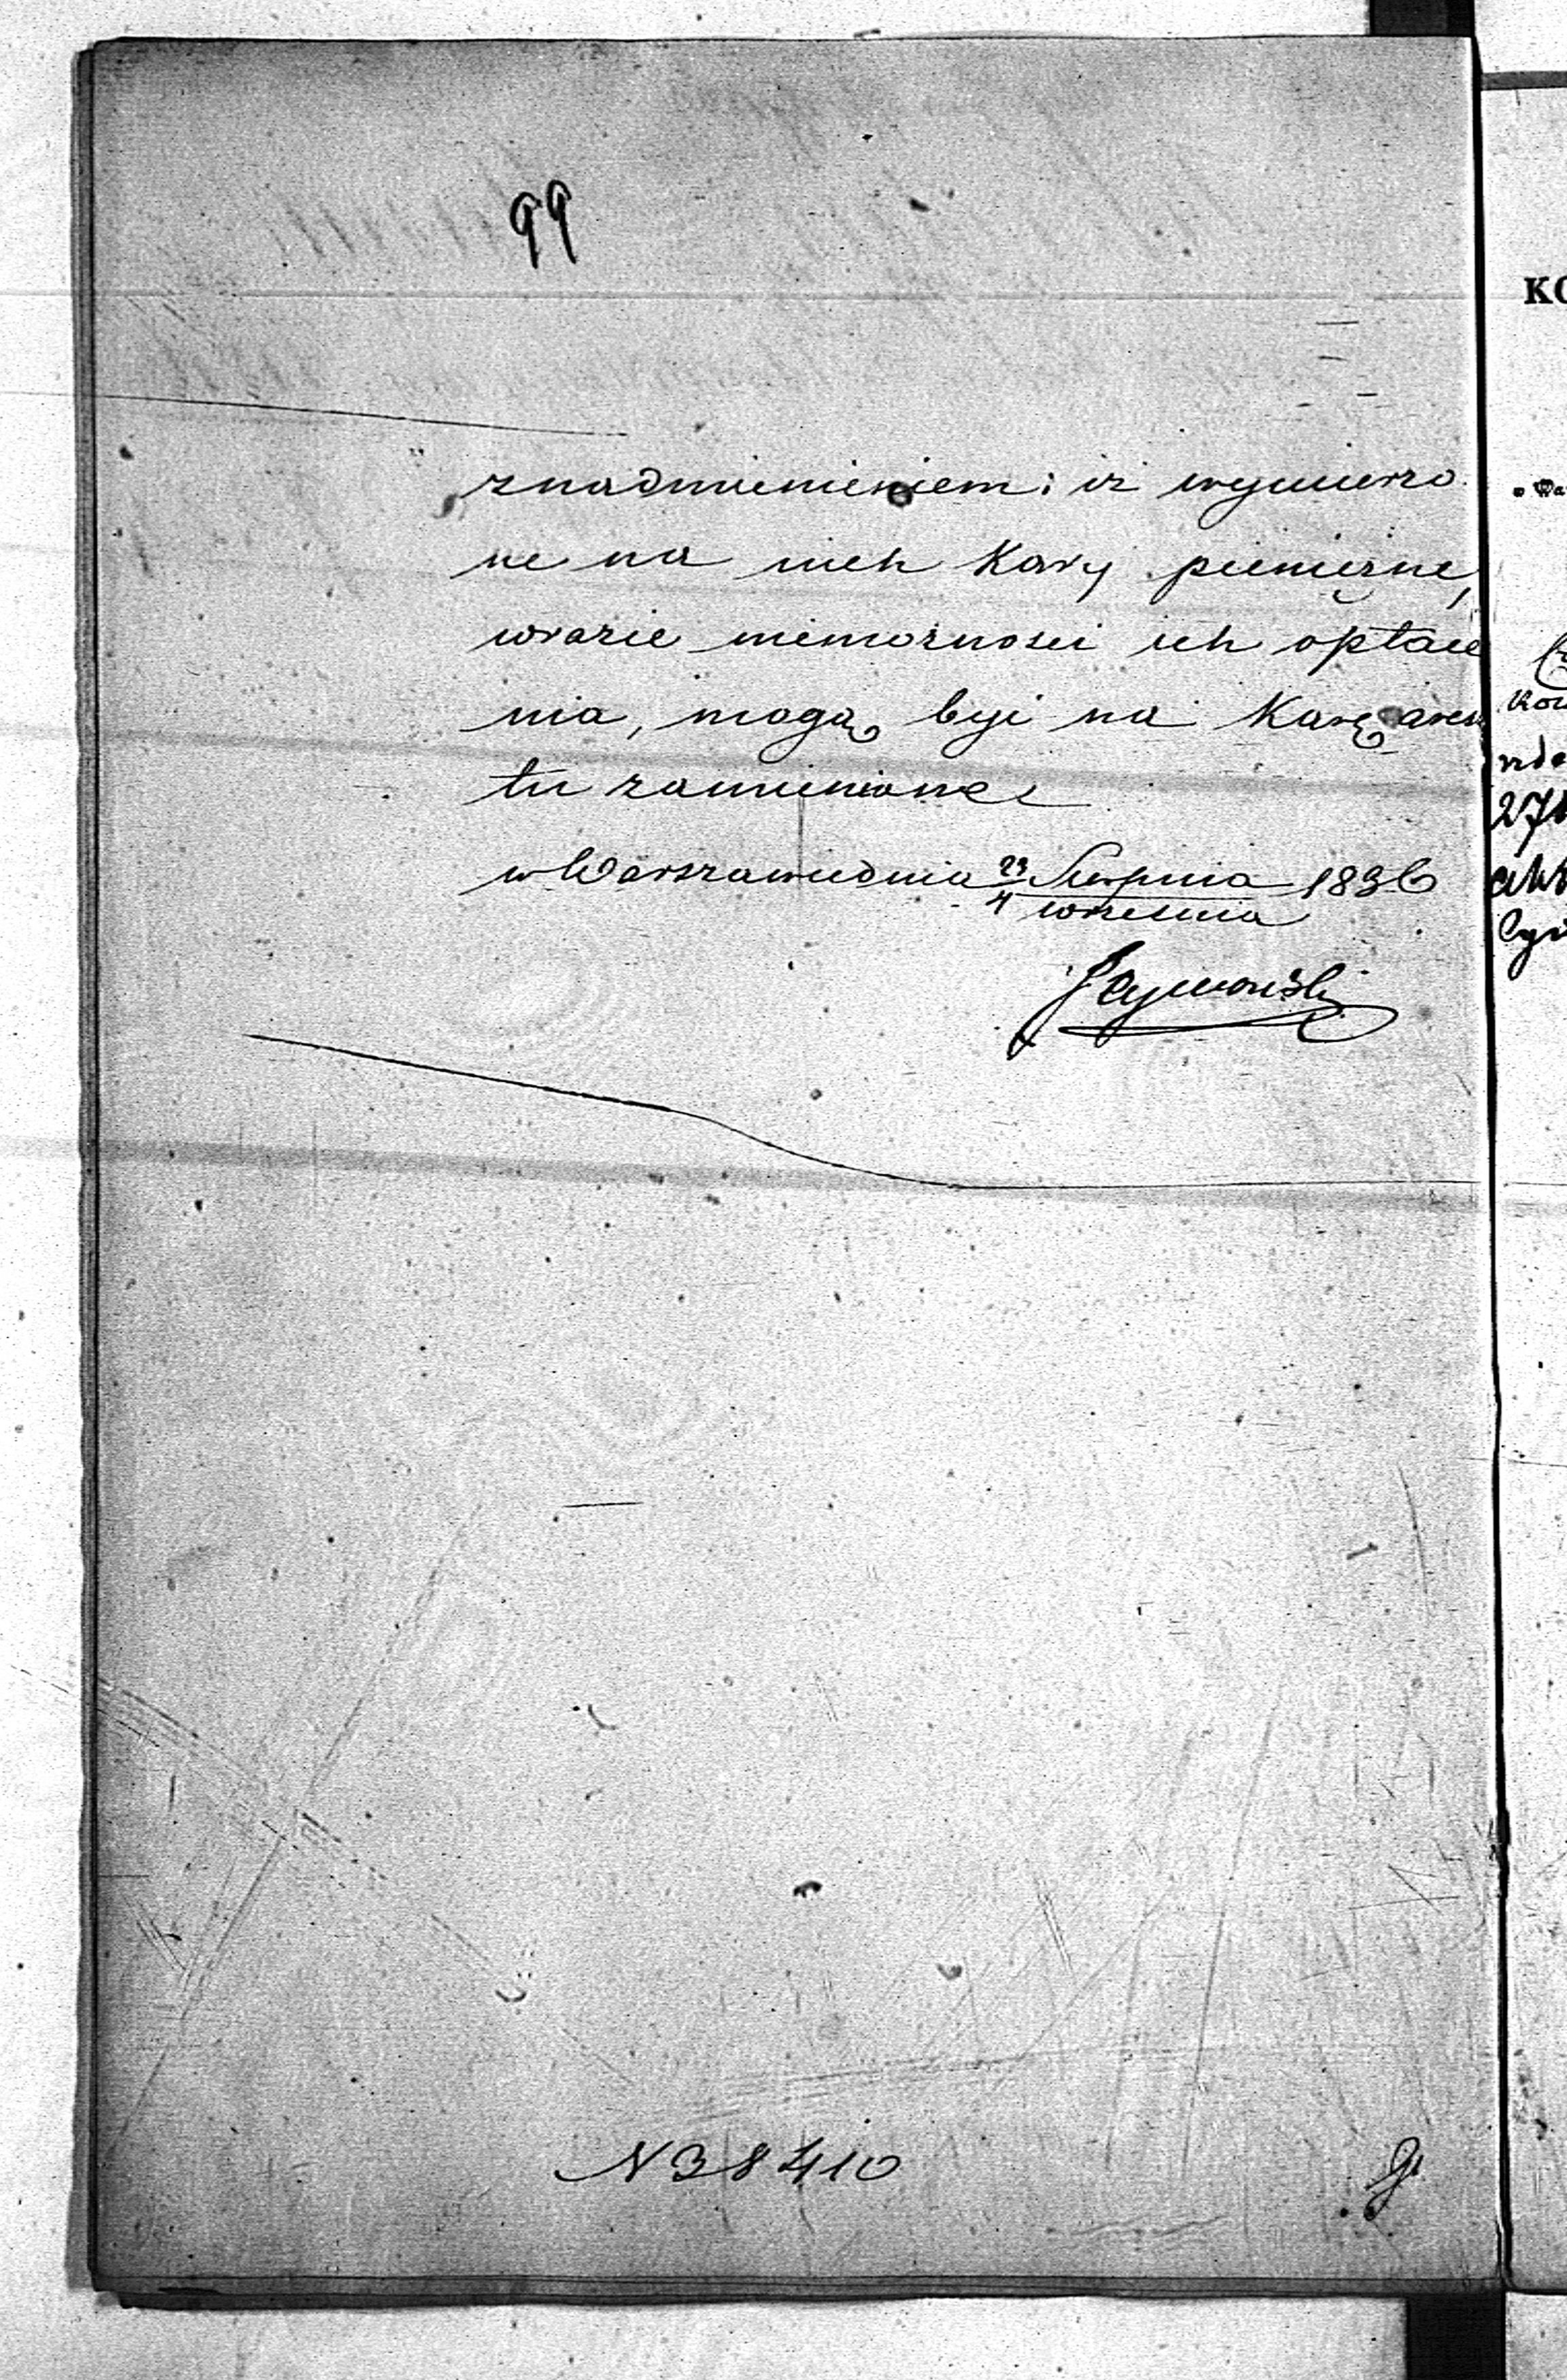 99
znadmienieniem; iż wymierzo
ne na nich Kary pieniężne,
wrazie niemożności ich opłace
nia, mogą być na Karę aresz
tu zamienione
w Warszawie dnia 23 Sierpnia 1836
4 września
Szymański
N 38410
KO
27